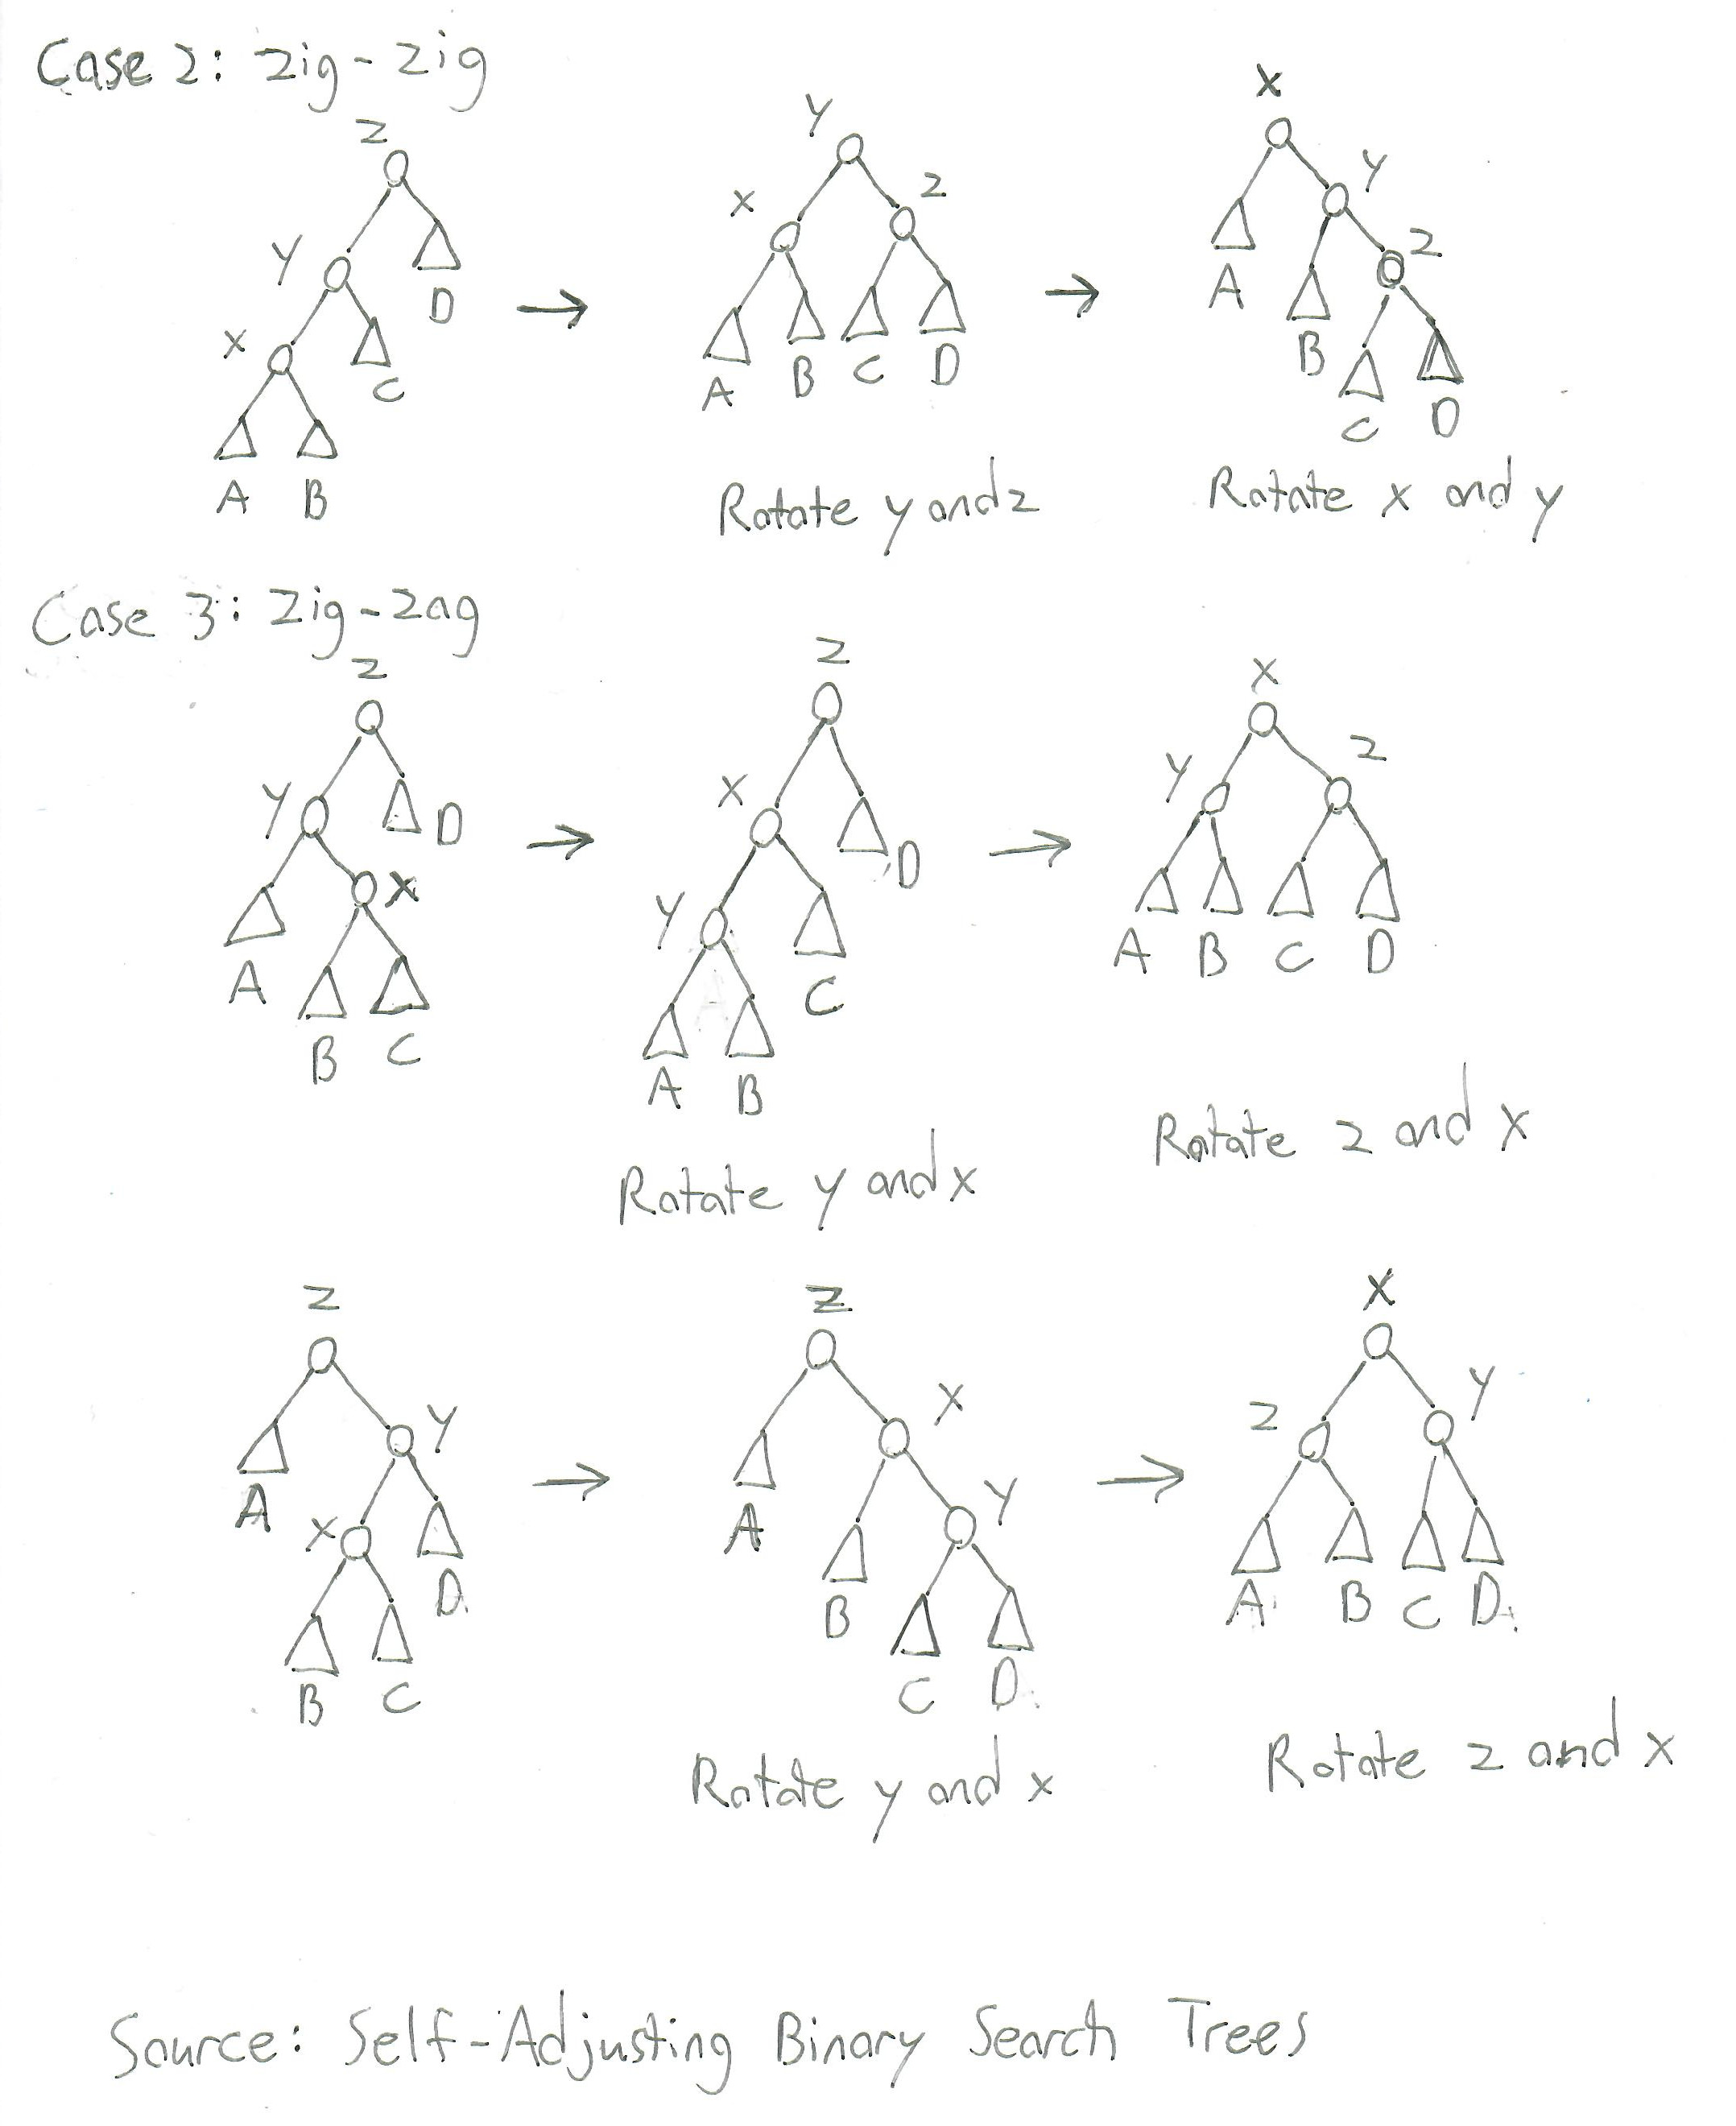 Case 2: Zig-Zig
Z
Y
D
X
C
A B
Y
X Z
A B C D
Rotate y and z
X
Y
A
Z
B
C D
Rotate x and y
Case 3: Zig-Zag
Z
Y D
X
A
B C
Z
X
D
Y
C
A B
Rotate y and x
X
Y Z
A B C D
Rotate z and x
Z
Y
A
X
D
B C
Z
X
A
Y
B
C D
Rotate y and x
X
Z Y
A B C D
Rotate z and x
Source: Self-Adjusting Binary Search Trees